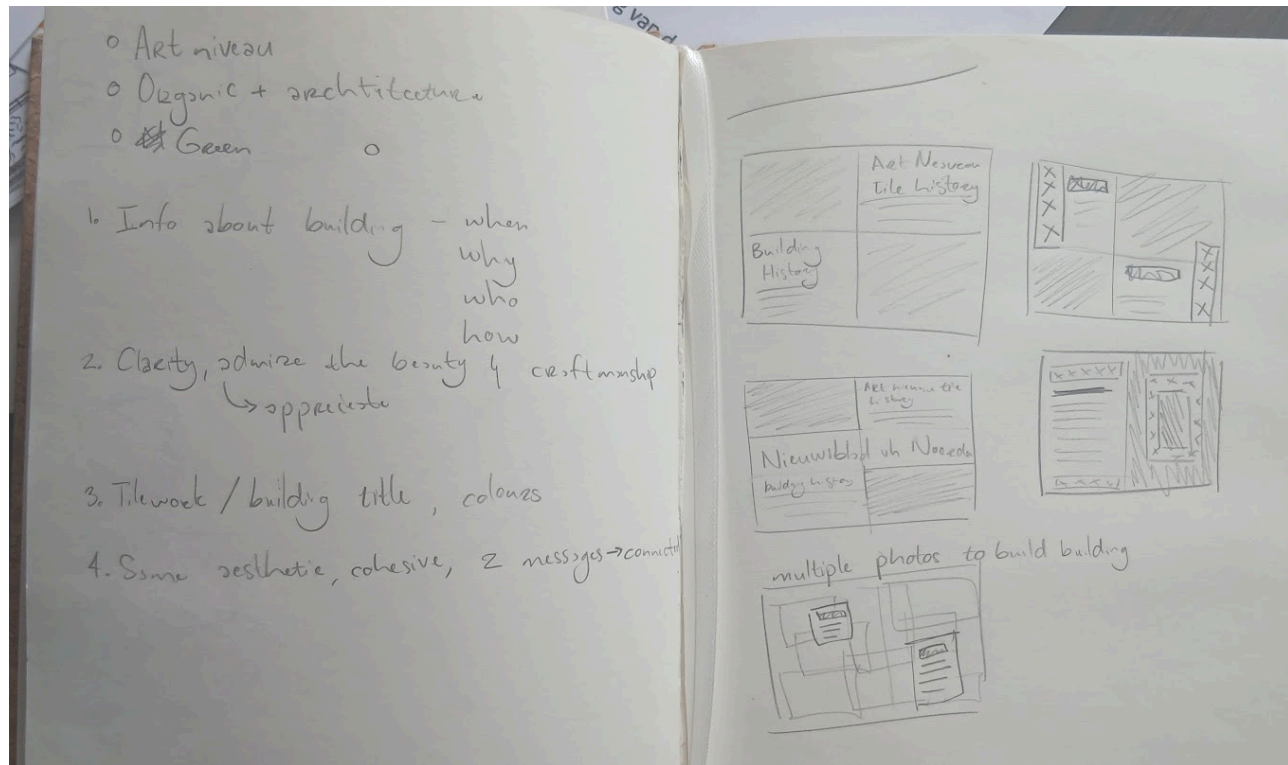 s van d
o Art niveau
o Organic + archtitecture.
o Green o
1. Info about building - when
why
who
how
2. Clarity, admire the beauty & craftmanship
↳ appreciate
3. Tilework / building title, colours
4. Same aesthetic, cohesive, 2 messages → connected
Art Nouveau
Tile History
Building
History
Art nouveau tile
history
Nieuwsblad vh Noorden
building history
multiple photos to build building